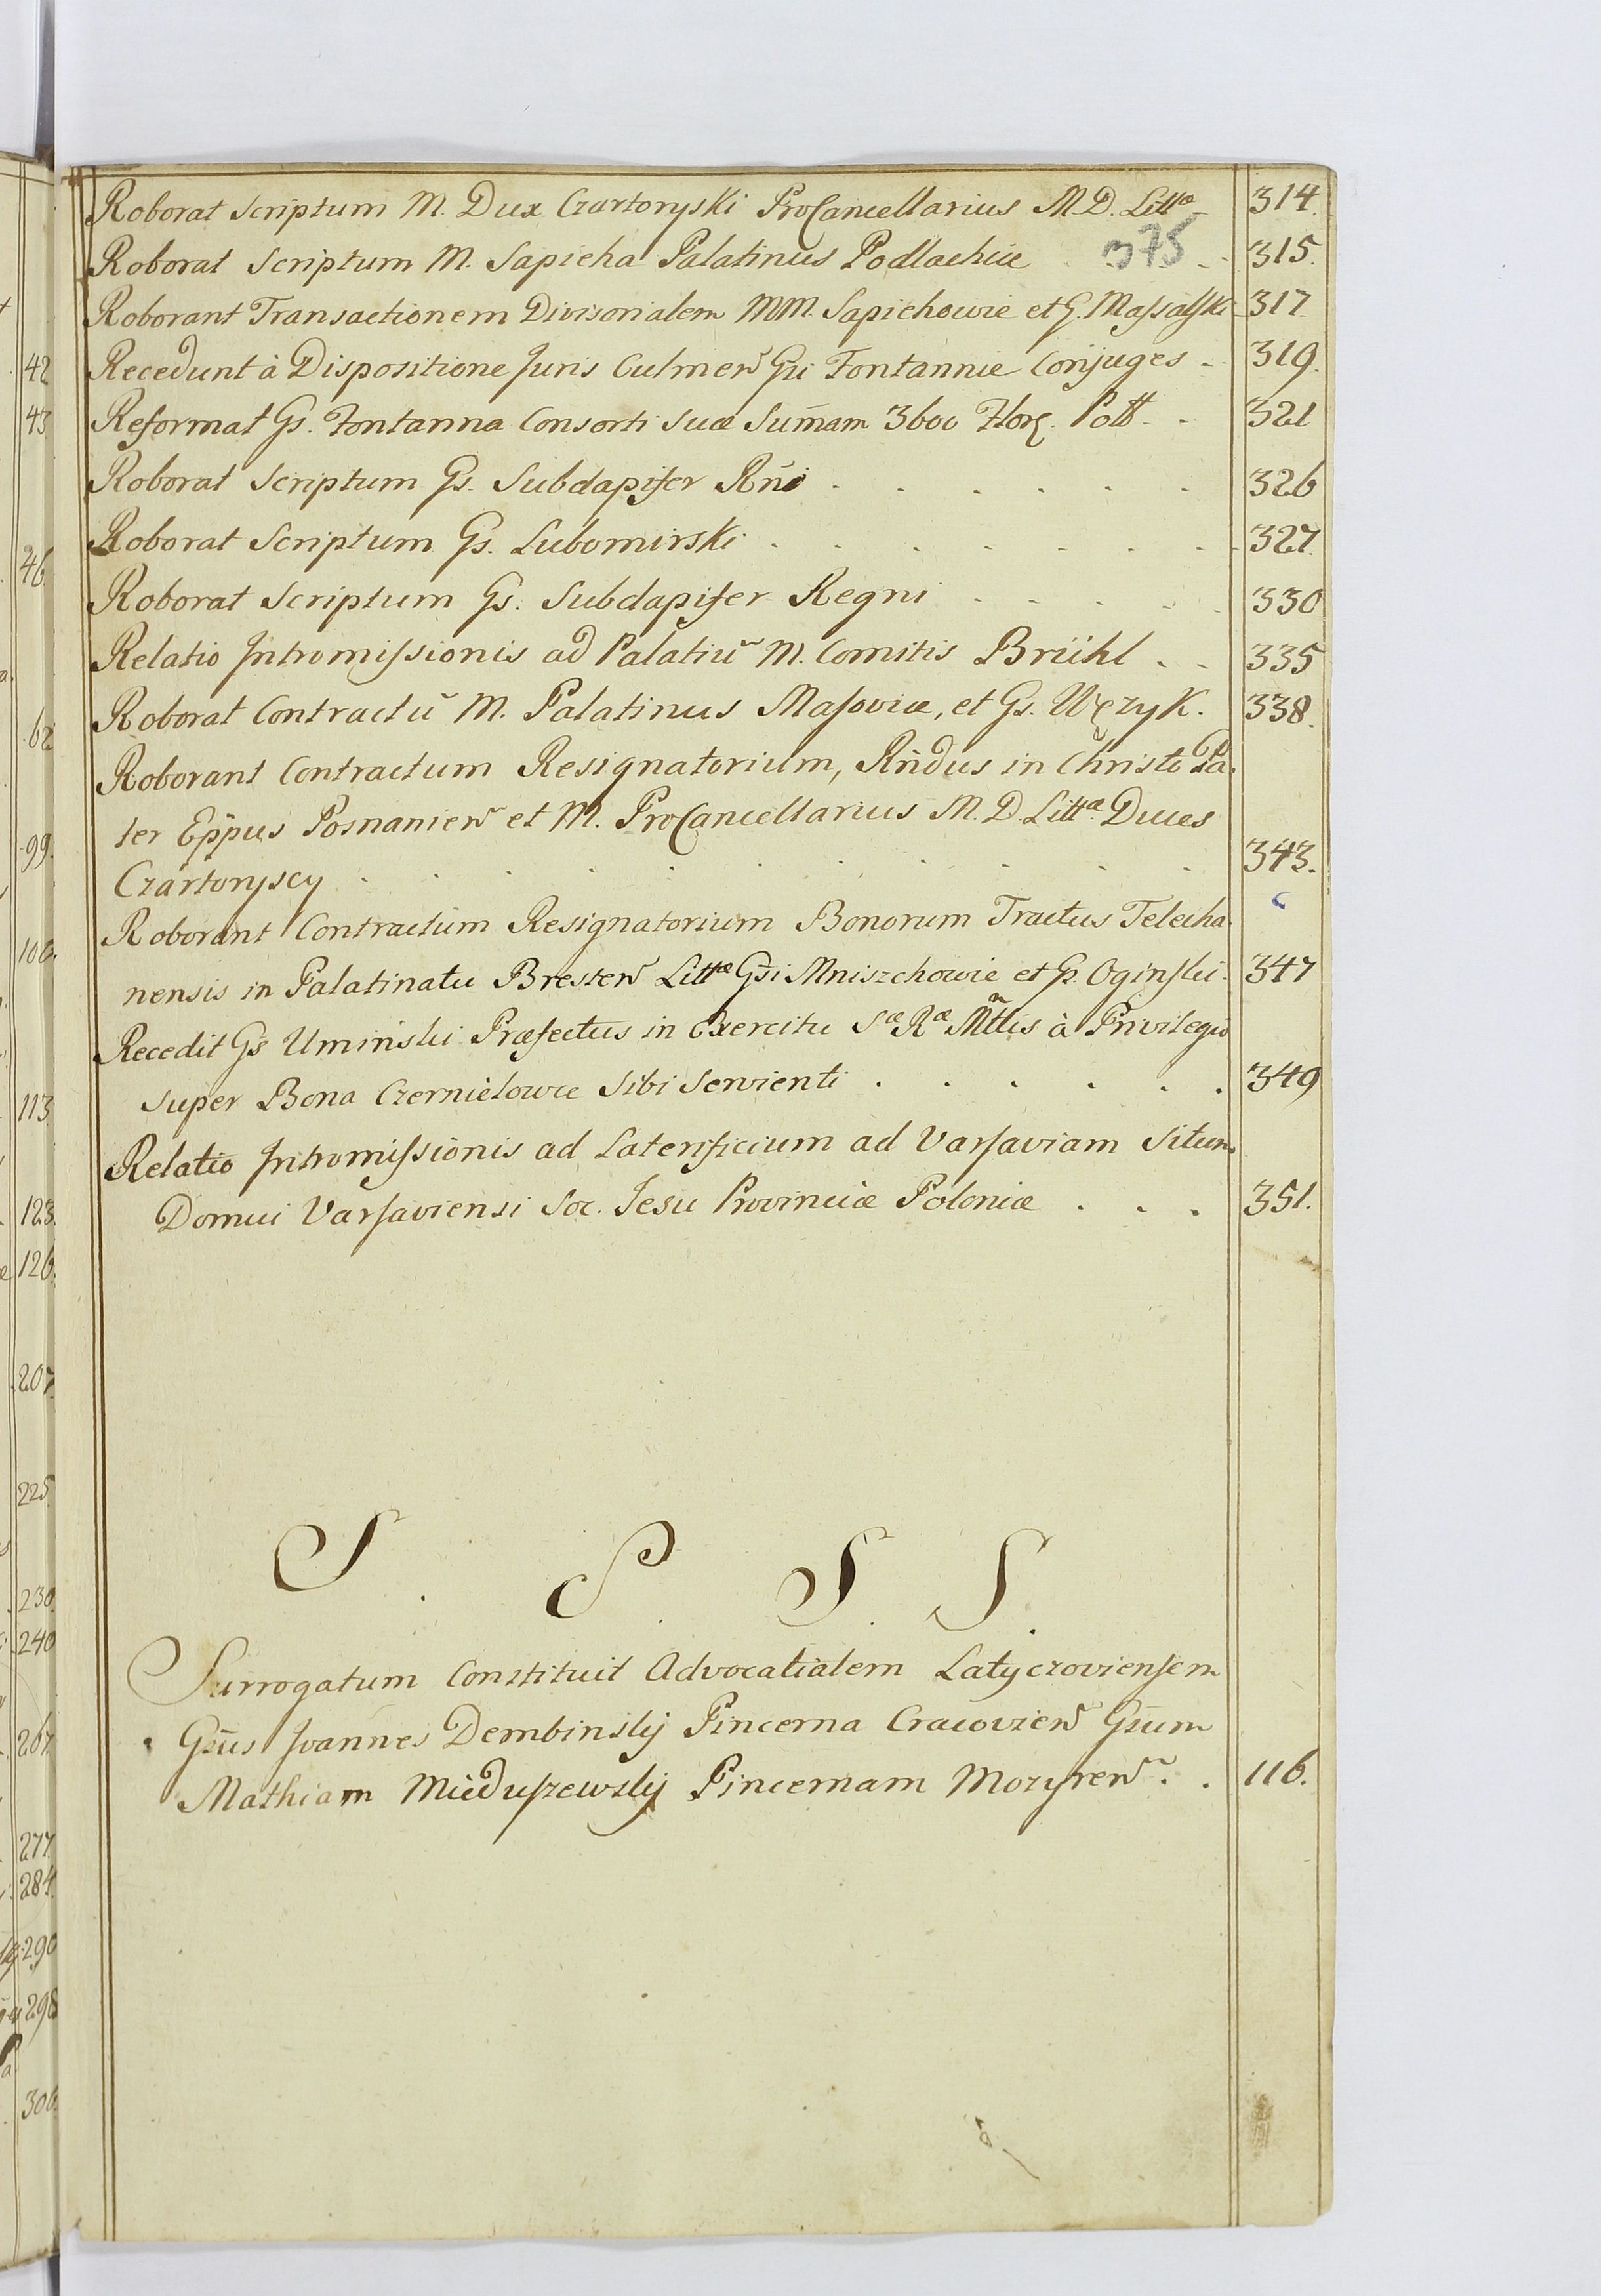 Roborat Scriptum M. Dux Czartoryski ProCancellarius M.D. Littæ 314.
375
Roborat Scriptum M. Sapieha Palatinus Podlachiæ . - . 315.
Roborant Transactionem Divisorialem MM. Sapiehowie et G. Maſsalſki 317.
Recedunt à Dispositione Juris Culmeñ Gsi Fontannie Conjuges - 319.
Reformat Gs. Fontanna Consorti Suæ Sum̄am 3600 Flor. Poll. . 321
Roborat Scriptum Gs. Subdapifer Rñi . . . . . . 326
Roborat Scriptum Gs. Lubomirski . . . . . . . 327.
Roborat Scriptum Gs. Subdapifer Regni . . . . . 330
Relatio Intromiſsionis ad Palatiũ M. Comitis Brühl . . 335
Roborat Contractũ M. Palatinus Maſoviæ, et Gs. Węzyk. 338.
Roborant Contractum Resignatorium, Rñdus in Christo Pa-
ter Eppus Posnanieñ et M. ProCancellarius M.D. Littæ Duces
Czartoryscy . . . . . . . . . . 343.
Roborant Contractum Resignatorium Bonorum Tractus Telecha-
nensis in Palatinatu Bresteñ Littæ Gsi Mniszchowie et G. Oginſki. 347
Recedit Gs Umiński Præfectus in Exercitu Sæ Ræ Mttis à Privilegio
super Bona Czernielowce Sibi Servienti . . . . . . 349
Relatio Intromiſsionis ad Laterificium ad Varſaviam Situm
Domui Varſaviensi Soc. Jesu Provinciæ Poloniæ . . . 351.
S. S. S. S.
Surrogatum Constituit Advocatialem Latyczovienſem
Gsus Joannes Dembinskj Pincerna Cracovieñ Gsum
Mathiam Mieduſzewskj Pincernam Mozyreñ . . 116.
42
43
46
62
99.
100.
113
123.
126.
207
225
230.
240
267.
277
284
290
298
306.